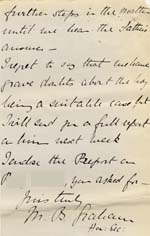 further steps in the matter
until we hear the Father's
answer —
I regret to say that we have
grave doubts about the boy
being a suitable case but
I will send you a full report
on him next week
I enclose the Report on
P , you asked for —
Yours truly
M. B. Graham
Hon: Sec: